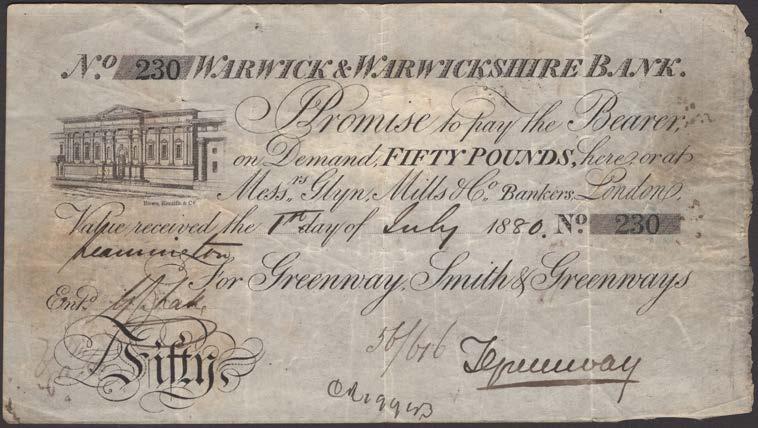 No. 230 WARWICK & WARWICKSHIRE BANK.
I Promise to pay the Bearer,
on Demand, FIFTY POUNDS, here, or at
Messrs. Glyn, Mills & Co. Bankers, London.
Value received the 1st day of July 1880. No. 230
Leamington
For Greenway, Smith & Greenways
Entd.
Fifty
56/616